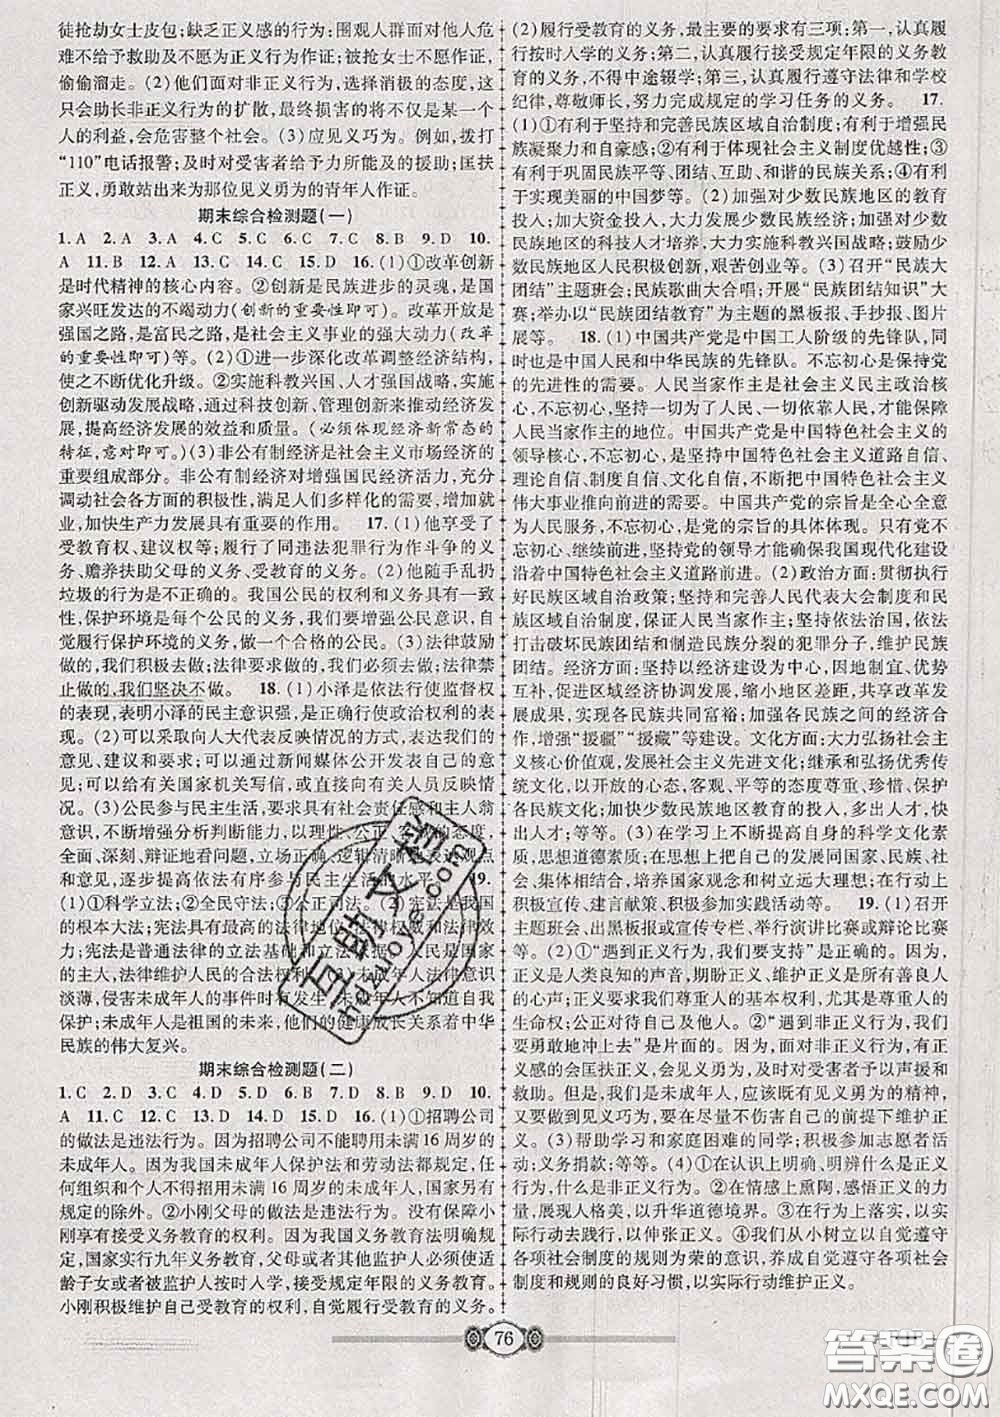 徒抢劫女士皮包;缺乏正义感的行为:围观人群面对他人危
难不给予救助及不愿为正义行为作证;被抢女士不愿作证,
偷偷溜走。(2)他们面对非正义行为,选择消极的态度,这
只会助长非正义行为的扩散,最终损害的将不仅是某一个
人的利益,会危害整个社会。(3)应见义巧为。例如,拨打
“110”电话报警;及时对受害者给予力所能及的援助;匡扶
正义,勇敢站出来为那位见义勇为的青年人作证。
期末综合检测题(一)
1. A 2. A 3. A 4. C 5. C 6. C 7. C 8. B 9. D 10.
A 11. B 12. A 13. C 14. C 15. D 16. (1)①改革创新
是时代精神的核心内容。②创新是民族进步的灵魂,是国
家兴旺发达的不竭动力(创新的重要性即可)。改革开放是
强国之路,是富民之路,是社会主义事业的强大动力(改革
的重要性即可)等。(2)①进一步深化改革调整经济结构,
使之不断优化升级。②实施科教兴国、人才强国战略,实施
创新驱动发展战略,通过科技创新、管理创新来推动经济发
展,提高经济发展的效益和质量。(必须体现经济新常态的
特征,意对即可。)(3)非公有制经济是社会主义市场经济的
重要组成部分。非公有制经济对增强国民经济活力,充分
调动社会各方面的积极性,满足人们多样化的需要,增加就
业,加快生产力发展具有重要的作用。 17. (1)他享受了
受教育权、建议权等;履行了同违法犯罪行为作斗争的义
务、赡养扶助父母的义务、受教育的义务。(2)他随手乱扔
垃圾的行为是不正确的。我国公民的权利和义务具有一致
性,保护环境是每个公民的义务,我们要增强公民意识,自
觉履行保护环境的义务,做一个合格的公民。(3)法律鼓励
做的,我们积极去做;法律要求做的,我们必须去做;法律禁
止做的,我们坚决不做。 18. (1)小泽是依法行使监督权
的表现,表明小泽的民主意识强,是正确行使政治权利的表
现。(2)可以采取向人大代表反映情况的方式,表明自己的
意见、建议和要求;可以通过新闻媒体公开发表自己的意
见;可以给有关国家机关写信,或直接向有关人员反映情
况。(3)公民参与民主生活,要求具有社会责任感和主人翁
意识,不断增强分析判断能力,以理性、公正、客观的态度,
全面、深刻、辩证地看问题,立场正确、逻辑清晰地表达观点
和意见,逐步提高依法有序参与民主生活的水平。 19.
(1)①科学立法;②全民守法;③公正司法。(2)宪法是我国
的根本大法;宪法具有最高的法律地位、法律权威和法律效
力;宪法是普通法律的立法基础和立法依据;人民是国家
的主人,法律维护人民的合法权利。(3)未成年人法律意识
淡薄,侵害未成年人的事件时有发生;未成年人不知道自我
保护;未成年人是祖国的未来,他们的健康成长关系着中华
民族的伟大复兴。
期末综合检测题(二)
1. C 2. D 3. D 4. C 5. C 6. C 7. C 8. D 9. D 10.
A 11. C 12. C 13. C 14. B 15. D 16. (1)①招聘公司
的做法是违法行为。因为招聘公司不能聘用未满16周岁的
未成年人。因为我国未成年人保护法和劳动法都规定,任
何组织和个人不得招用未满16周岁的未成年人,国家另有
规定的除外。②小刚父母的做法是违法行为。没有保障小
刚享有接受义务教育的权利。我国义务教育法明确规
定,国家实行九年义务教育,父母或者其他监护人必须使适
龄子女或者被监护人按时入学,接受规定年限的义务教育。
小刚积极维护自己受教育的权利,自觉履行受教育的义务。
(2)履行受教育的义务,最主要的要求有三项:第一,认真
履行按时入学的义务;第二,认真履行接受规定年限的义务教
育的义务,不得中途辍学;第三,认真履行遵守法律和学校
纪律,尊敬师长,努力完成规定的学习任务的义务。 17.
(1)①有利于坚持和完善民族区域自治制度;有利于增强民
族凝聚力和自豪感;②有利于体现社会主义制度优越性;③
有利于巩固民族平等、团结、互助、和谐的民族关系;④有利
于实现美丽的中国梦等。(2)加强对少数民族地区的教育
投入,加大资金投入,大力发展少数民族经济;加强对少数
民族地区的科技人才培养,大力实施科教兴国战略;鼓励少
数民族地区人民积极创新,艰苦创业等。(3)召开“民族大
团结”主题班会;民族歌曲大合唱;开展“民族团结知识”大
赛;举办以“民族团结教育”为主题的黑板报、手抄报、图片
展等。 18. (1)中国共产党是中国工人阶级的先锋队,同
时也是中国人民和中华民族的先锋队。不忘初心是保持党
的先进性的需要。人民当家作主是社会主义民主政治核
心,不忘初心,坚持一切为了人民、一切依靠人民,才能保障
人民当家作主的地位。中国共产党是中国特色社会主义的
领导核心,不忘初心,坚持中国特色社会主义道路自信、
理论自信、制度自信、文化自信,才能不断把中国特色社会主义
伟大事业推向前进的需要。中国共产党的宗旨是全心全意
为人民服务,不忘初心,是党的宗旨的具体体现。只有不忘
初心、继续前进,坚持党的领导才能确保我国现代化建设
沿着中国特色社会主义道路前进。(2)政治方面:贯彻执行
好民族区域自治政策;坚持和完善人民代表大会制度和民
族区域自治制度,保证人民当家作主;坚持依法治国,依法
打击破坏民族团结和制造民族分裂的犯罪分子,维护民族
团结。经济方面:坚持以经济建设为中心,因地制宜、优势
互补,促进区域经济协调发展,缩小地区差距,共享改革发
展成果,实现各民族共同富裕;加强各民族之间的经济合
作,增强“援疆”“援藏”等建设。文化方面:大力弘扬社会主
义核心价值观,发展社会主义先进文化;继承和弘扬优秀传
统文化,以开放的心态,客观、平等的态度尊重、珍惜、保护
各民族文化;加快少数民族地区教育的投入,多出人才、快
出人才;等等。(3)在学习上不断提高自身的科学文化素
质,思想道德素质;在思想上把自己的发展同国家、民族、社
会、集体相结合,培养国家观念和树立远大理想;在行动上
积极宣传、建言献策、积极参加实践活动等。 19. (1)召开
主题班会、出黑板报或宣传专栏、举行演讲比赛或辩论比赛
等。(2)①“遇到正义行为,我们要支持”是正确的。因为,
正义是人类良知的声音,期盼正义、维护正义是每个有良知
的人的心声;正义要求我们尊重人的基本权利,尤其是尊重人的
生命权;公正对待自己及他人。②“遇到非正义行为,我们
要勇敢地冲上去”是片面的。因为,面对非正义行为,有正
义感的会匡扶正义,及时对受害者给予声援和
救助。但是我们是未成年人,应该既有见义勇为的精神,
又要做到见义巧为,要在尽量不伤害自己的前提下维护正
义。(3)帮助学习和家庭困难的同学;积极参加志愿者活
动;义务捐款;等等。(4)①在认识上明确、明辨什么是正义
行为、什么是非正义行为。②在情感上熏陶,感悟正义的力
量,展现人格美,以升华道德境界。③在行为上落实,以自
己的实际行动去践行,以伸张正义。④我们从小树立以自觉遵守
各项社会制度的规则为荣的意识,养成自觉遵守各项社会
制度和规则的良好习惯,以实际行动维护正义。
76
互助文档
hdzuoye.com
答案圈
MXQE.COM